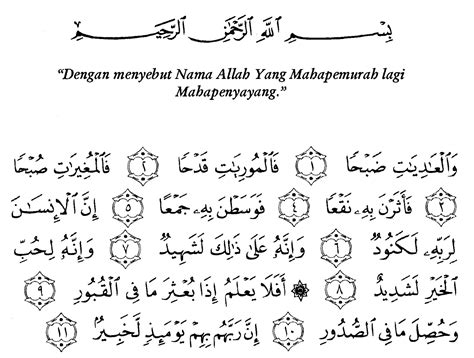 بِسْمِ اللَّهِ الرَّحْمَٰنِ الرَّحِيمِ
“Dengan menyebut Nama Allah Yang Mahapemurah lagi
Mahapenyayang.”
وَالْعَادِيَاتِ ضَبْحًا ١ فَالْمُورِيَاتِ قَدْحًا ٢ فَالْمُغِيرَاتِ صُبْحًا
٣ فَأَثَرْنَ بِهِ نَقْعًا ٤ فَوَسَطْنَ بِهِ جَمْعًا ٥ إِنَّ الْإِنْسَانَ
لِرَبِّهِ لَكَنُودٌ ٦ وَإِنَّهُ عَلَىٰ ذَٰلِكَ لَشَهِيدٌ ٧ وَإِنَّهُ لِحُبِّ
الْخَيْرِ لَشَدِيدٌ ٨ ۞ أَفَلَا يَعْلَمُ إِذَا بُعْثِرَ مَا فِي الْقُبُورِ ٩
وَحُصِّلَ مَا فِي الصُّدُورِ ١٠ إِنَّ رَبَّهُمْ بِهِمْ يَوْمَئِذٍ لَخَبِيرٌ ١١